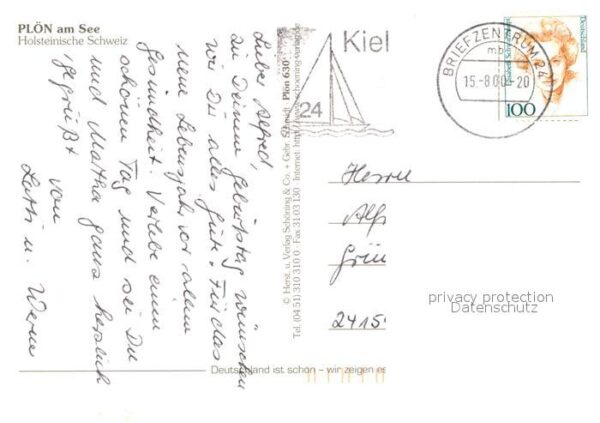 PLÖN am See
Holsteinische Schweiz
Lieber Alfred,
zu Deinem Geburtstag wünschen
wir Dir alles Gute. Für das
neue Lebensjahr vor allem
Gesundheit. Verlebe einen
schönen Tag und sei Du
und Martha ganz herzlich
gegrüßt von
Lotti u. Werner
© Herst. u. Verlag Schöning & Co. + Gebr. Schmidt
Plön 630
Tel. (04 51) 310 310 0 · Fax 31 03 130 · Internet: http://www.schoening-verlag.de
Kiel
24
BRIEFZENTRUM 24
mb
15.-8.00.-20
Deutschland
100
Herrn
Alf
Grün
2415
privacy protection
Datenschutz
Deutschland ist schön – wir zeigen es